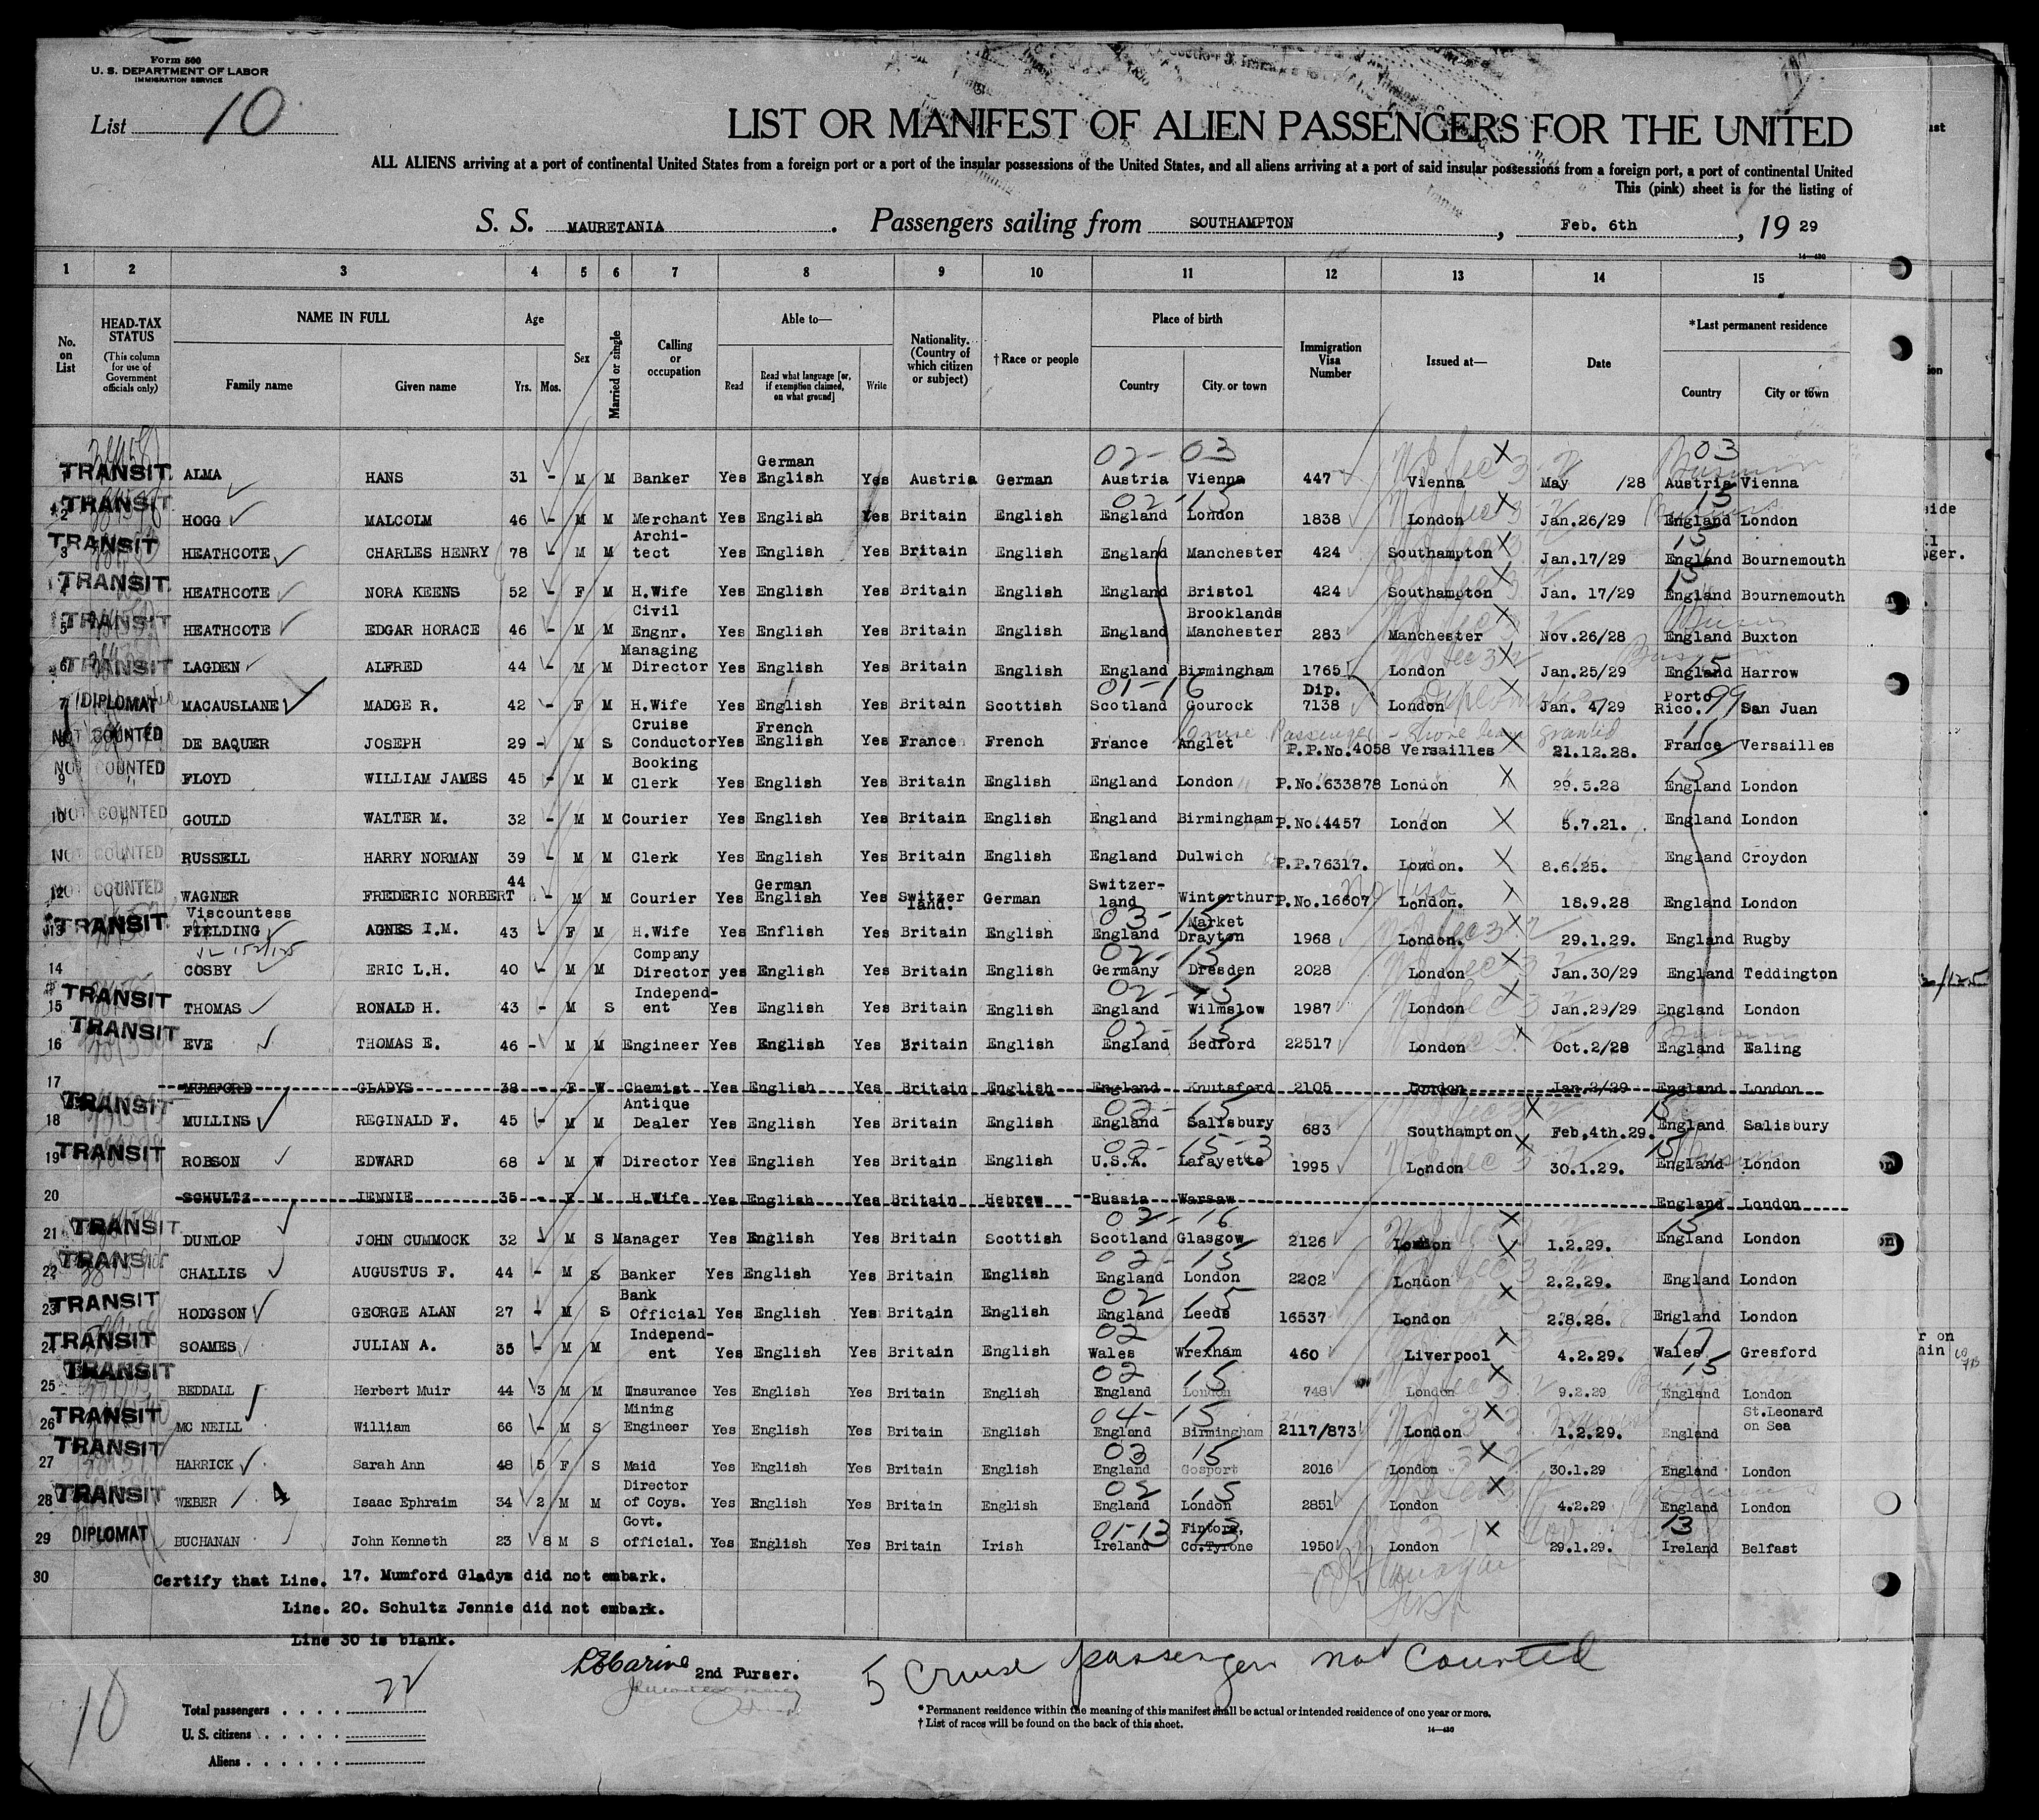 Form 500
U. S. DEPARTMENT OF LABOR
IMMIGRATION SERVICE
List 10
LIST OR MANIFEST OF ALIEN PASSENGERS FOR THE UNITED
ALL ALIENS arriving at a port of continental United States from a foreign port or a port of the insular possessions of the United States, and all aliens arriving at a port of said insular possessions from a foreign port, a port of continental United
This (pink) sheet is for the listing of
S. S. MAURETANIA. Passengers sailing from SOUTHAMPTON, Feb. 6th, 19 29
14—430
1 2 3 4 5 6 7 8 9 10 11 12 13 14 15
No. on List
HEAD-TAX STATUS (This column for use of Government officials only)
NAME IN FULL Family name Given name
Age Yrs. Mos.
Sex
Married or single
Calling or occupation
Able to— Read Read what language [or, if exemption claimed, on what ground] Write
Nationality. (Country of which citizen or subject)
†Race or people
Place of birth Country City or town
Immigration Visa Number
Issued at—
Date
*Last permanent residence Country City or town
02-03 03
TRANSIT ALMA HANS 31 - M M Banker Yes German English Yes Austria German Austria Vienna 447 Vienna May /28 Austria Vienna
02-15 15
TRANSIT 2 HOGG MALCOLM 46 - M M Merchant Yes English Yes Britain English England London 1838 London Jan.26/29 England London
15
TRANSIT 3 HEATHCOTE CHARLES HENRY 78 - M M Archi-tect Yes English Yes Britain English England Manchester 424 Southampton Jan.17/29 England Bournemouth
15
TRANSIT HEATHCOTE NORA KEENS 52 - F M H.Wife Yes English Yes Britain English England Bristol 424 Southampton Jan. 17/29 England Bournemouth
TRANSIT 5 HEATHCOTE EDGAR HORACE 46 - M M Civil Engnr. Yes English Yes Britain English England Brooklands Manchester 283 Manchester Nov.26/28 England Buxton
TRANSIT 6 LAGDEN ALFRED 44 - M M Managing Director Yes English Yes Britain English England Birmingham 1765 London Jan.25/29 England Harrow 15
01-16 99
DIPLOMAT 7 MACAUSLANE MADGE R. 42 - F M H.Wife Yes English Yes Britain Scottish Scotland Gourock Dip. 7138 London Jan. 4/29 Porto Rico. San Juan
Cruise Passenger - Shore leave granted
NOT COUNTED 8 DE BAQUER JOSEPH 29 - M S Cruise Conductor Yes French English Yes France French France Anglet P.P.No.4058 Versailles 21.12.28. France Versailles
15
NOT COUNTED 9 FLOYD WILLIAM JAMES 45 - M M Booking Clerk Yes English Yes Britain English England London P.No.633878 London 29.5.28 England London
NOT COUNTED 10 GOULD WALTER M. 32 - M M Courier Yes English Yes Britain English England Birmingham P.No.4457 London 5.7.21. England London
NOT COUNTED RUSSELL HARRY NORMAN 39 - M M Clerk Yes English Yes Britain English England Dulwich P.P.76317. London. 8.6.25. England Croydon
No Visa
NOT COUNTED 12 WAGNER FREDERIC NORBERT 44 - M M Courier Yes German English Yes Switzer land. German Switzer-land Winterthur P.No.16607 London. 18.9.28 England London
03-15
TRANSIT 13 Viscountess FIELDING AGNES I.M. 43 - F M H.Wife Yes Enflish Yes Britain English England Market Drayton 1968 London. 29.1.29. England Rugby
02-15
14 COSBY ERIC L.H. 40 - M M Company Director yes English Yes Britain English Germany Dresden 2028 London Jan.30/29 England Teddington
02-15
TRANSIT 15 THOMAS RONALD H. 43 - M S Independ-ent Yes English Yes Britain English England Wilmslow 1987 London Jan.29/29 England London
02-15
TRANSIT 16 EVE THOMAS E. 46 - M M Engineer Yes English Yes Britain English England Bedford 22517 London Oct.2/28 England Ealing
17 MUMFORD GLADYS 38 - F W Chemist Yes English Yes Britain English England Knutsford 2105 London Jan.2/29 England London
02-15 15
TRANSIT 18 MULLINS REGINALD F. 45 - M M Antique Dealer Yes English Yes Britain English England Salisbury 683 Southampton Feb.4th.29. England Salisbury
02-15-3 15
TRANSIT 19 ROBSON EDWARD 68 - M W Director Yes English Yes Britain English U.S.A. Lafayette 1995 London 30.1.29. England London
20 SCHULTZ JENNIE 35 - F M H.Wife Yes English Yes Britain Hebrew Russia Warsaw England London
02-16 15
TRANSIT 21 DUNLOP JOHN CUMMOCK 32 - M S Manager Yes English Yes Britain Scottish Scotland Glasgow 2126 London 1.2.29. England London
02-15
TRANSIT 22 CHALLIS AUGUSTUS F. 44 - M S Banker Yes English Yes Britain English England London 2202 London 2.2.29. England London
02 15
TRANSIT 23 HODGSON GEORGE ALAN 27 - M S Bank Official Yes English Yes Britain English England Leeds 16537 London 2.8.28. England London
02 17 17
TRANSIT 24 SOAMES JULIAN A. 35 - M M Independ-ent Yes English Yes Britain English Wales Wrexham 460 Liverpool 4.2.29. Wales Gresford
02 15 15
TRANSIT 25 BEDDALL Herbert Muir 44 3 M M Insurance Yes English Yes Britain English England London 748 London 9.2.29 England London
04-15
TRANSIT 26 MC NEILL William 66 - M S Mining Engineer Yes English Yes Britain English England Birmingham 2117/873 London 1.2.29. England St.Leonard on Sea
03 15
TRANSIT 27 HARRICK Sarah Ann 48 5 F S Maid Yes English Yes Britain English England Gosport 2016 London 30.1.29 England London
02 15
TRANSIT 28 WEBER 4 Isaac Ephraim 34 2 M M Director of Coys. Yes English Yes Britain English England London 2851 London 4.2.29 England London
01-13 13 13
DIPLOMAT 29 BUCHANAN John Kenneth 23 8 M S Govt. official. Yes English Yes Britain Irish Ireland Fintora, Co.Tyrone 1950 London 29.1.29. Ireland Belfast
30 Certify that Line. 17. Mumford Gladys did not embark.
Line. 20. Schultz Jennie did not embark.
Line 30 is blank.
2nd Purser.
5 Cruise passengers not counted
10
Total passengers . . . . 22
U. S. citizens . . . . .
Aliens . . . . . .
* Permanent residence within the meaning of this manifest shall be actual or intended residence of one year or more.
† List of races will be found on the back of this sheet.
14—430